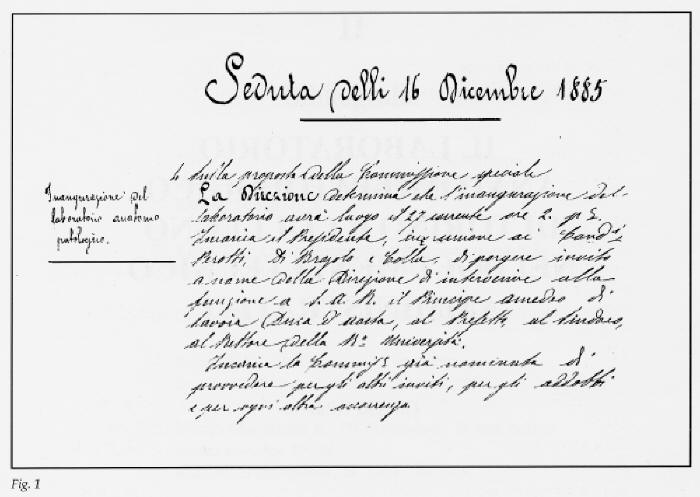 Seduta delli 16 Dicembre 1885
Inaugurazione del
laboratorio anatomo
patologico.
4 Sulla proposta della Commissione speciale
La Direzione determina che l'inaugurazione del
laboratorio avrà luogo il 27 corrente ore 2 p.
Incarica il Presidente, in unione ai
Perotti, Di Brozolo e Colla, di porgere invito
a nome della Direzione di intervenire alla
funzione a S. A. R. il Principe Amedeo di
Savoia Duca d'Aosta, al Prefetto, al Sindaco,
al Rettore della Rª Università.
Incarica la già nominata di
provvedere per gli altri inviti, per gli addobbi
e per ogni altra occorrenza
Fig. 1